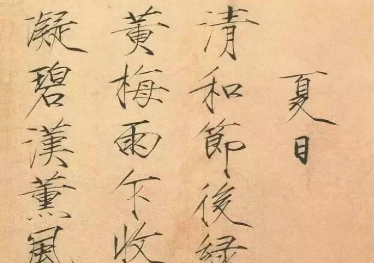 夏日
清和節後緑
黃梅雨乍收
凝碧漢薰風